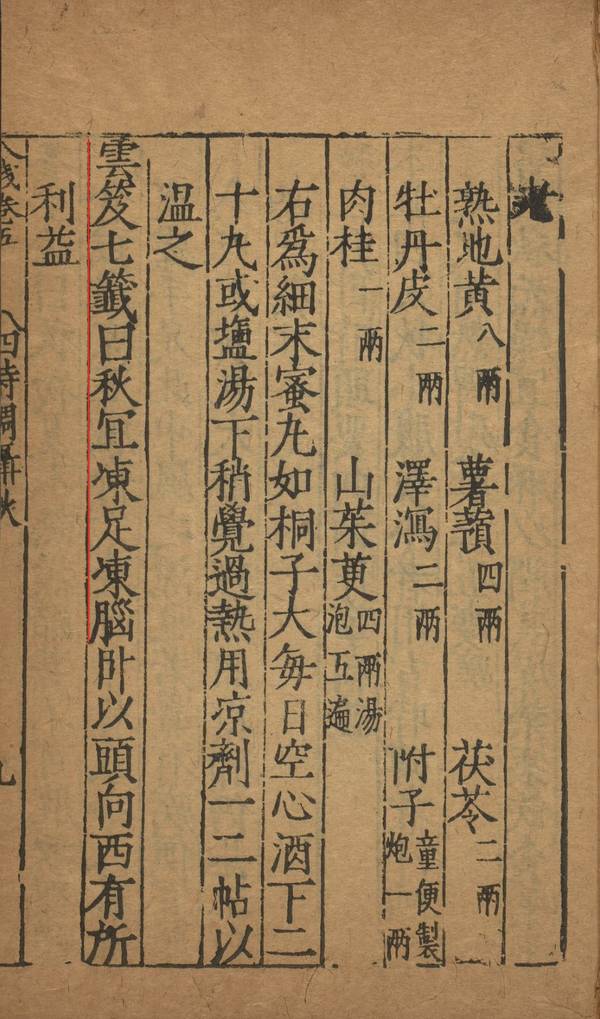 者
熟地黃八兩 薯蕷四兩 茯苓二兩
牡丹皮二兩 澤瀉二兩 附子童便製炮一兩
肉桂一兩 山茱萸四兩湯泡五遍
右爲細末蜜丸如桐子大每日空心酒下二
十丸或鹽湯下稍覺過熱用凉劑一二帖以
温之
雲笈七籤曰秋冝凍足凍腦卧以頭向西有所
利益
八牋卷五 八四時調攝秋 九